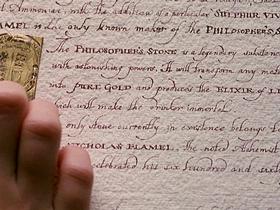 with the addition of a particular SULPHUR
only known maker of the PHILOSOPHER'S
The PHILOSOPHER'S STONE is a legendary substance
with astonishing powers. It will transform any
into PURE GOLD and produces the ELIXIR of
which will make the drinker immortal.
only stone currently in existence belongs
NICHOLAS FLAMEL, the noted Alchemist
celebrated his six hundred and